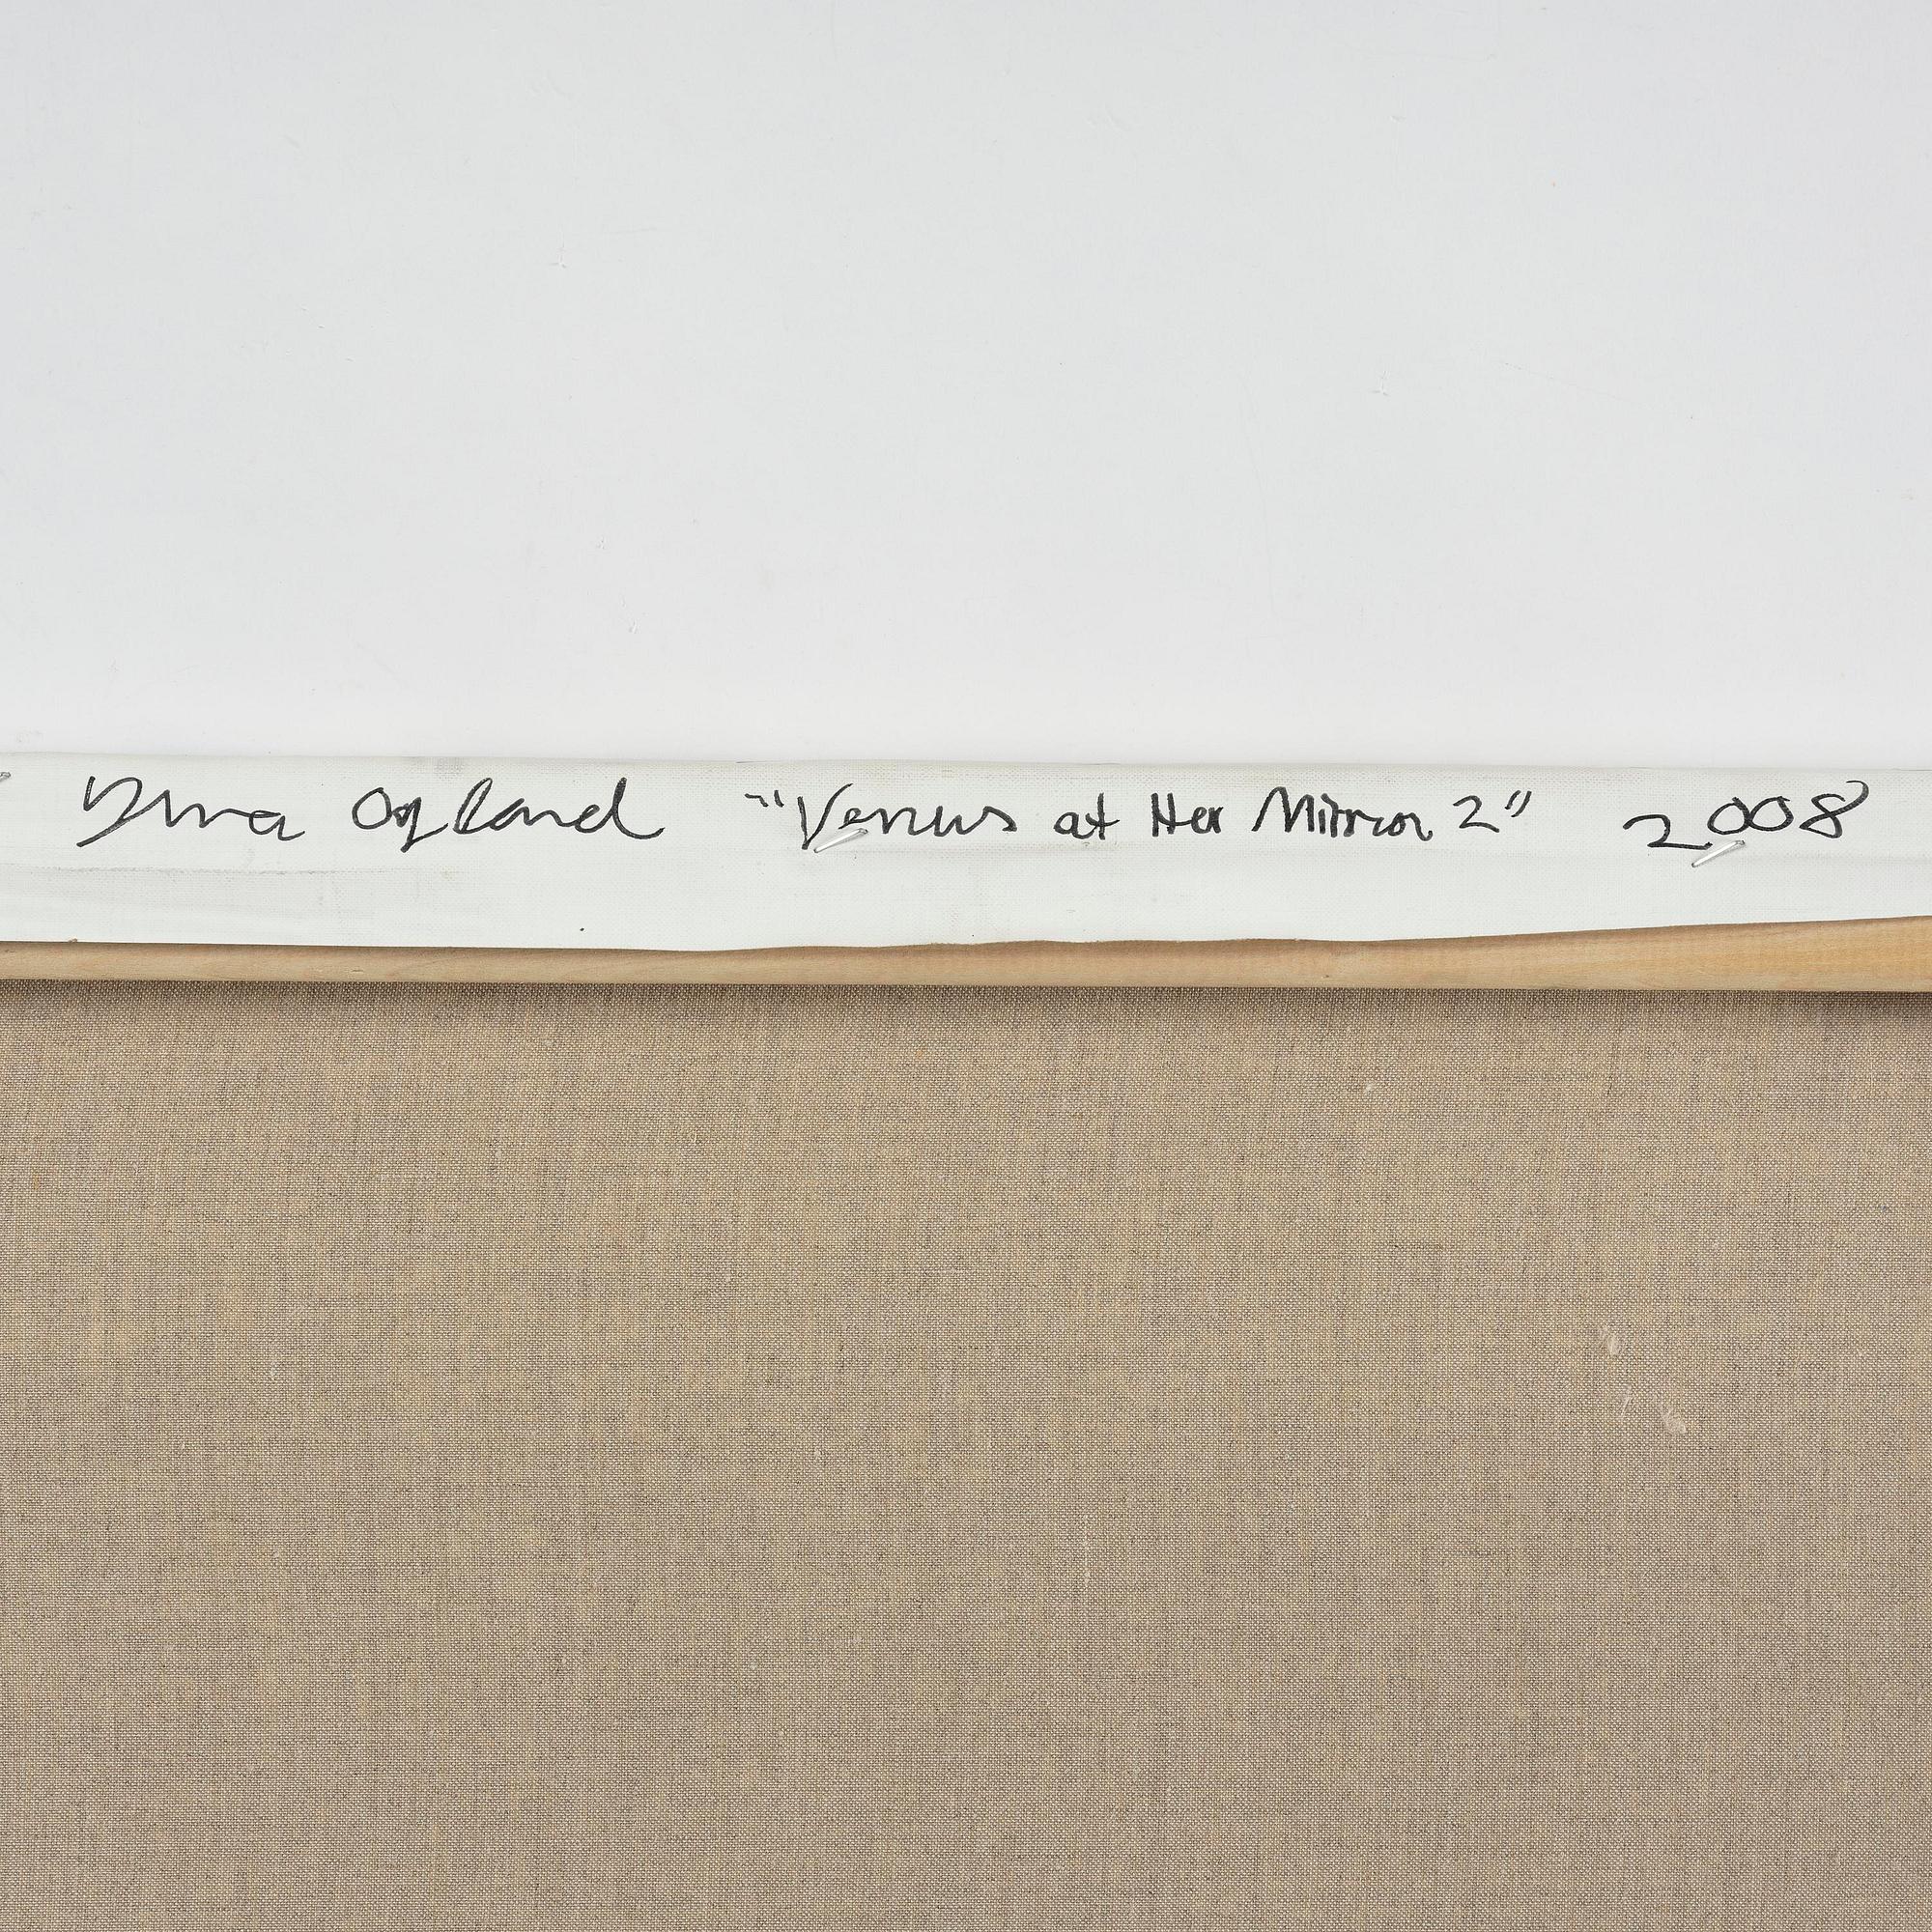 Nina Ogland "Venus at Her Mirror 2" 2008